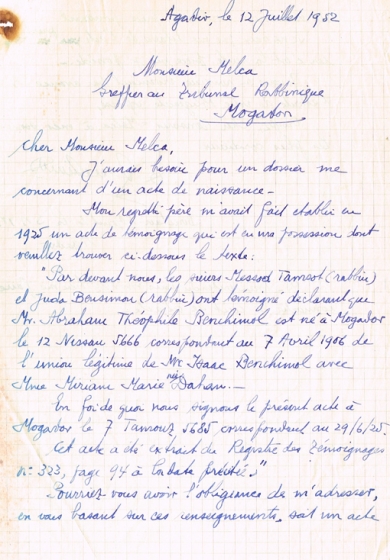 Agadir, le 12 Juillet 1952
Monsieur Melca
Greffier au Tribunal Rabbinique
Mogador
Cher Monsieur Melca,
J'aurais besoin pour un dossier me
concernant d'un acte de naissance -
Mon regretté père m'avait fait établir en
1925 un acte de témoignage qui est en ma possession dont
veuillez trouver ci-dessous le texte:
"Par devant nous, les sieurs Messod Tamest (rabbin)
et Juda Bensimon (rabbin) ont témoigné déclarant que
Mr. Abraham Théophile Benchimol est né à Mogador
le 12 Nissan 5666 correspondant au 7 Avril 1906 de
l'union légitime de Mr Isaac Benchimol avec
Mme Miriam Marie née Dahan. -
En foi de quoi nous signons le présent acte à
Mogador le 7 Tamouz 5685 correspondant au 29/6/25.
Cet acte a été extrait du Registre des Témoignages
n° 323, page 94 à la date précitée."
Pourriez-vous avoir l'obligeance de m'adresser,
en vous basant sur ces renseignements, soit un acte